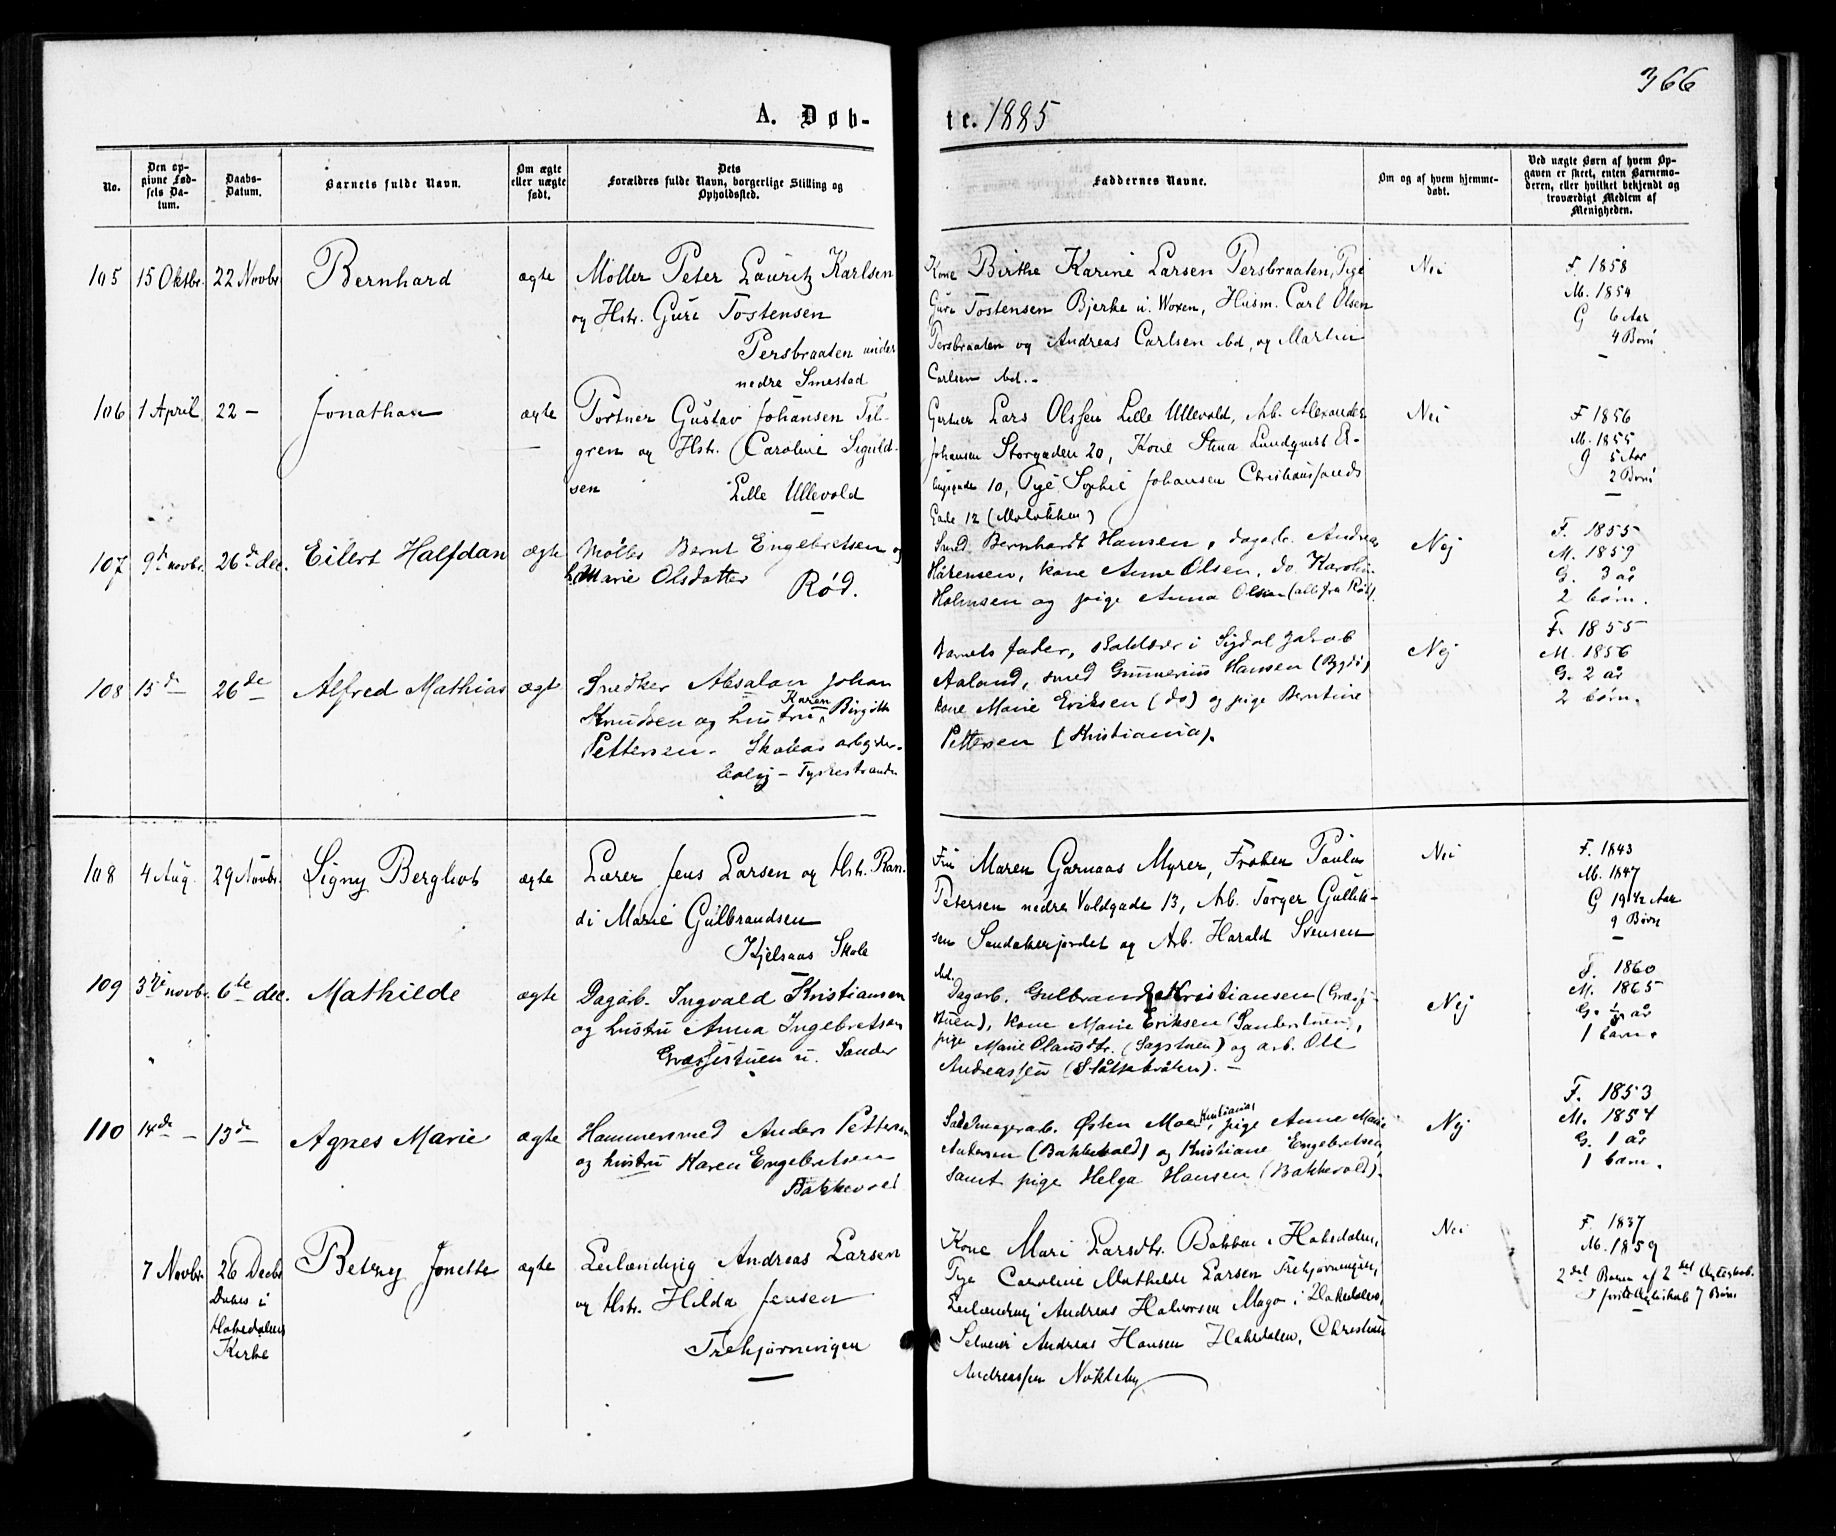 366
A. Døb-
te. 1885
No.
Den op-
givne Fød-
sels Da-
tum.
Daabs-
Datum.
Barnets fulde Navn.
Om ægte
eller uægte
født.
Dets
Forældres fulde Navn, borgerlige Stilling og
Opholdssted.
Faddernes Navne.
Om og af hvem hjemme-
døbt.
Ved uægte Børn af hvem Op-
gaven er skeet, enten Barnemo-
deren, eller hvilket bekjendt og
troværdigt Medlem af
Menigheden.
105 15 Oktbr. 22 Novbr. Bernhard ægte
Møller Peter Lauritz Karlsen
og Hstr. Guri Tostensen
Persbraaten under
nedre Smestad
Kone Birthe Karine Larsen Persbraaten, Pige
Guri Tostensen Bjerke u. Woxen, Husm. Carl Olsen
Persbraaten og Andreas Carlsen ibd, og Martin
Carlsen ibd.
Nei
F. 1858
M. 1854
G 6 Aar
4 Børn
106 1 April 22 – Jonathan ægte
Portner Gustav Johansen Til-
gren og Hstr. Caroline Siguld-
sen
Lille Ullevold
Gertner Lars Olssen Lille Ullevold, Arb. Alexander
Johansen Storgaden 20, Kone Stina Lundqvist
10, Pige Sophie Johansen Christiansfands
Gade 12
Nei
F 1856
M. 1855
G 5 Aar
2 Børn
107 9de novbr. 26de dec. Eilert Halfdan ægte
Møller Bernt Engebretsen og
h. Marie Olsdatter
Rød.
Smed Bernhardt Hansen, dagarb. Andreas
kone Anne Olsen, do Karoline
Holmsen og pige Anna Olsen (alle fra Rød).
Nej
F. 1855
M. 1859
G. 3 år
2 børn.
108 15de 26de Alfred Mathias ægte
Snedker Absalon Johan
Knudsen og hustru Karen Birgitte
Pettersen. Skabos arbejder-
bolig – Tyskestranden
Barnets fader, i Sigdal Jakob
Aaland, smed Gunnerius Hansen (Bygdø)
kone Marie Eriksen (do) og pige Berntine
Pettersen (Kristiania).
Nej
F. 1855
M. 1856
G. 2 år
2 børn.
108 4 Aug. 29 Novbr. Signy Bergliot ægte
Lærer Jens Larsen og Hstr. Ran-
di Marie Gulbrandsen
Kjelsaas Skole
Fru Maren Garnaas Myrer, Frøken Paula
Petersen nedre Voldgade 13, Arb. Torger Gullik-
sen Sandakerjordet og Arb. Harald Stensen
ibd.
Nei
F. 1843
M. 1847
G 19 1/2 Aar
9 Børn
109 3die novbr. 6te dec. Mathilde ægte
Dagarb. Ingvald Kristiansen
og hustru Anna Ingebretsen
u. Sander
Dagarb. Gulbrand Kristiansen
kone Marie Eriksen (Sanderstuen),
pige Marie Olausdtr. (Sagstuen) og arb. Ole
Andreassen (Slåtsbråten).
Nej
F. 1860
M. 1865
G. 1/2 år
1 barn.
110 14de – 13de Agnes Marie ægte
Hammersmed Anders Pettersen
og hustru Karen Engebretsen
Bakkevold
Sadelmagerarb. Østen Moen, Kristiania, pige Anne Marie
Andersen (Bakkevold) og Kristiane Engebretsen,
samt pige Helga Hansen (Bakkevold).
Nej
F. 1853
M. 1854
G. 1 år
1 barn.
7 Novbr. 26 Decbr. Betzy Jonette ægte
Døbt i
Hakedalens
Kirke
Leilænding Andreas Larsen
og Hstr. Hilda Jensen
Trehjørningen
Kone Mari Larsdtr. Bakken i Hakedalen,
Pige Caroline Mathilde Larsen Trehjørningen,
Leilænding Andreas Halvorsen Mago i Hakedalen,
Selveier Andreas Hansen Hakedalen, Christian
Andreassen Nokkleby
Nei
F. 1837
M. 1859
2det Barn af 2det Ægteskab.
I første Ægteskab 7 Børn